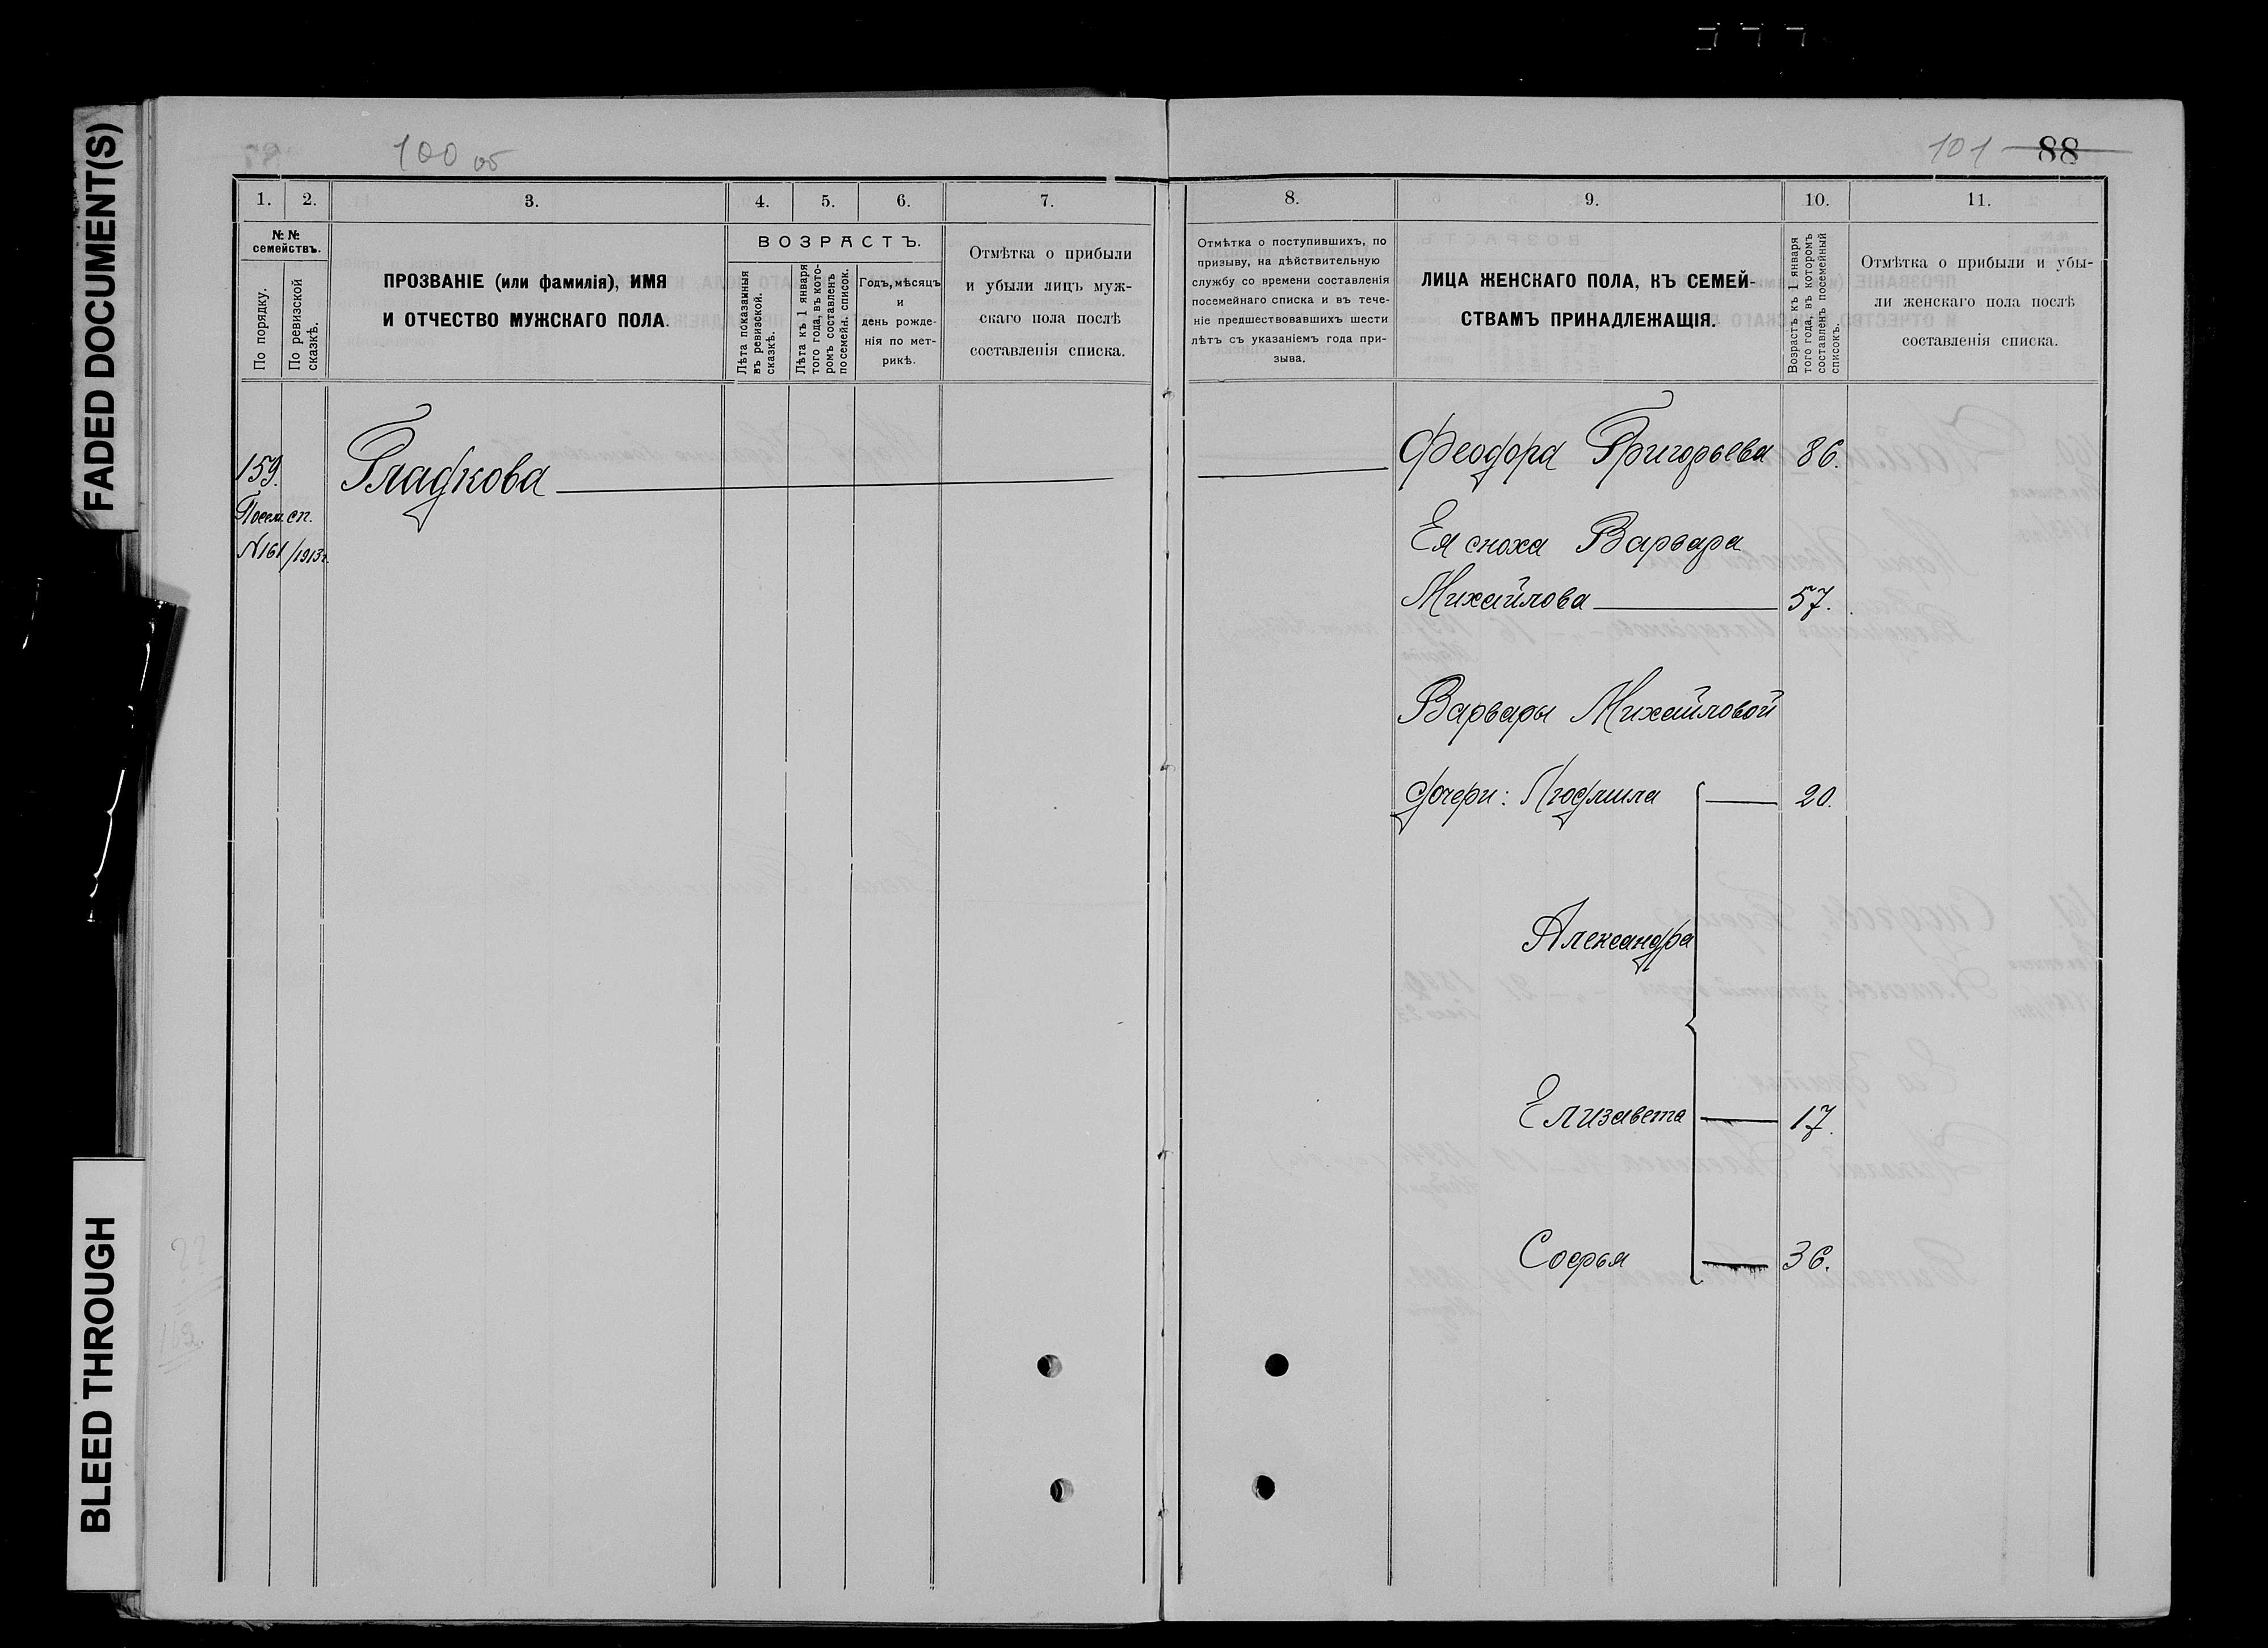 FADED DOCUMENT(S)
BLEED THROUGH
100 об
101 88
1. 2. 3. 4. 5. 6. 7.
№ №
семействъ.
По порядку.
По ревизской
сказкѣ.
ПРОЗВАНІЕ (или фамилія), ИМЯ
И ОТЧЕСТВО МУЖСКАГО ПОЛА.
ВОЗРАСТЪ.
Лѣта показанныя
въ ревизской.
сказкѣ.
Лѣта къ 1 января
того года, въ кото-
ромъ составленъ
посемейн. список.
Годъ, мѣсяцъ
и
день рожде-
нія по мет-
рикѣ.
Отмѣтка о прибыли
и убыли лицъ муж-
скаго пола послѣ
составленія списка.
159.
Посем. сп.
N161/1913г.
Гладкова
8. 9. 10. 11.
Отмѣтка о поступившихъ, по
призыву, на дѣйствительную
службу со времени составленія
посемейнаго списка и въ тече-
ніе предшествовавшихъ шести
лѣтъ съ указаніемъ года при-
зыва.
ЛИЦА ЖЕНСКАГО ПОЛА, КЪ СЕМЕЙ-
СТВАМЪ ПРИНАДЛЕЖАЩІЯ.
Возрастъ къ 1 января
того года, въ которомъ
составленъ посемейный
списокъ.
Отмѣтка о прибыли и убы-
ли женскаго пола послѣ
составленія списка.
Феодора Григорьева 86.
Ея сноха Варвара
Михайлова 57.
Варвары Михайловой
дочери: Людмила 20.
Александра
Елизавета 17.
Софья 36.